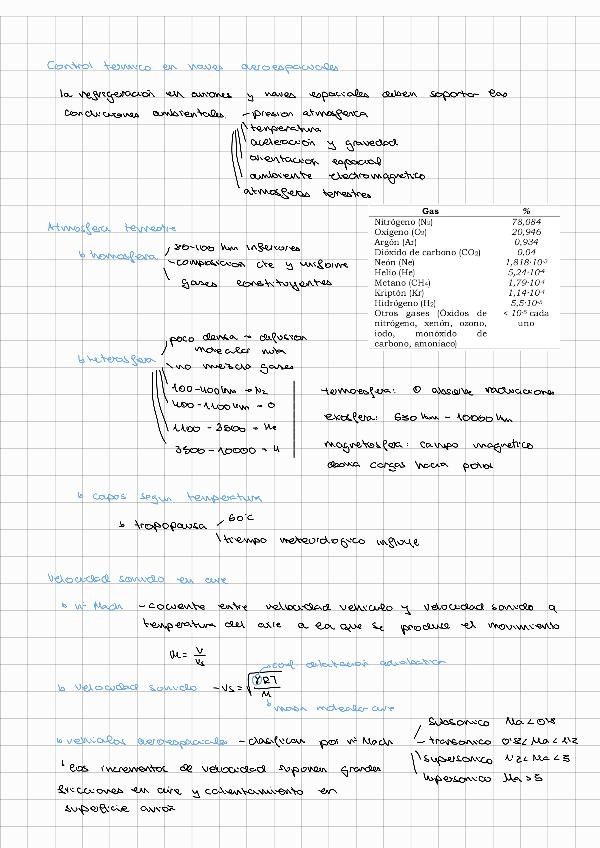 Control termico en naves aeroespaciales
la refrigeración en aviones y naves espaciales deben soportar las
condiciones ambientales - presion atmosferica
temperatura
aceleración y gravedad
orientación espacial
ambiente electromagnetico
atmosferas terrestres
Gas %
Nitrógeno (N₂) 78,084
Oxígeno (O₂) 20,946
Argón (Ar) 0,934
Dióxido de carbono (CO₂) 0,04
Neón (Ne) 1,818·10⁻³
Helio (He) 5,24·10⁻⁴
Metano (CH₄) 1,79·10⁻⁴
Kriptón (Kr) 1,14·10⁻⁴
Hidrógeno (H₂) 5,5·10⁻⁵
Otros gases (Óxidos de < 10⁻⁵ cada
nitrógeno, xenón, ozono, uno
iodo, monóxido de
carbono, amoniaco)
Atmosfera terrestre
↳ homosfera
30-100 km inferiores
- composicion cte y uniforme
gases constituyentes
poco densa → difusion
molecular
↳ heterosfera
no mezcla gases
100-400 km → N₂
400-1100 km → O
1100-3500 → He
3500-10000 → H
termosfera: absorbe radiaciones
exosfera: 650 km - 10000 km
magnetosfera: campo magnetico
cargas hacia polos
↳ capas segun temperatura
↳ tropopausa
60°C
tiempo meteorologico influye
Velocidad sonido en aire
↳ nº Mach - cociente entre velocidad vehiculo y velocidad sonido a
temperatura del aire a la que se produce el movimiento
M = V/Vs
coef dilatacion adiabatica
↳ velocidad sonido - Vs = √(γRT/M)
↳ masa molecular aire
↳ vehiculos aeroespaciales - clasifican por nº Mach
subsonico Ma < 0'8
- transonico 0'8 < Ma < 1'2
supersonico 1'2 < Ma < 5
hipersonico Ma > 5
los incrementos de velocidad suponen grandes
fricciones en aire y calentamiento en
superficie